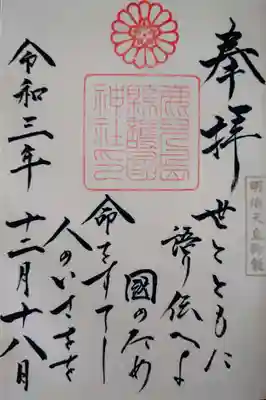 奉拝
明治天皇御製
世とともに
語り伝へよ
國のため
命をすてし
人のいさをを
鹿兒島
縣護國
神社印
令和三年
十二月十八日